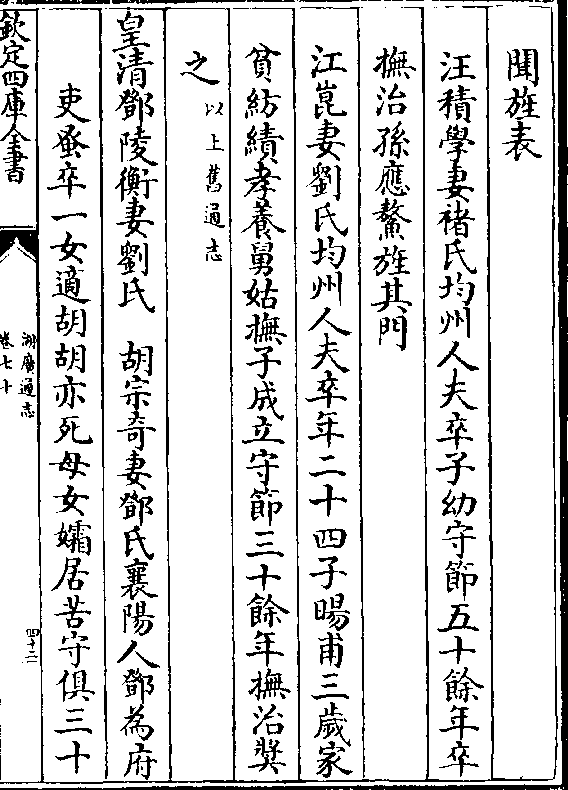 聞旌表
汪積學妻褚氏均州人夫卒子幼守節五十餘年卒
撫治孫應鰲旌其門
江崑妻劉氏均州人夫卒年二十四子暘甫三歲家
貧紡績孝養舅姑撫子成立守節三十餘年撫治獎
之以上舊通志
皇清鄧陵衡妻劉氏　胡宗奇妻鄧氏襄陽人鄧為府
吏蚤卒一女適胡胡亦死母女孀居苦守俱三十
欽定四庫全書
湖廣通志
卷七十
四十二